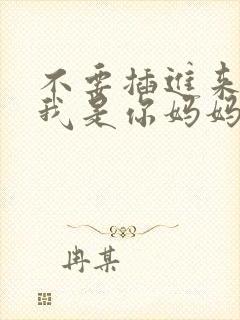 不要插进来
我是你妈妈
冉某